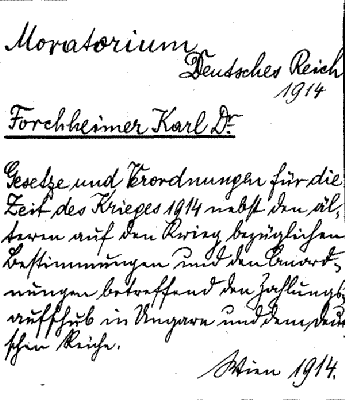 Moratorium
Deutsches Reich
1914
Forchheimer Karl Dr.
Gesetze und Verordnungen für die
Zeit des Krieges 1914 nebst den äl-
teren auf den Krieg bezüglichen
Bestimmungen und den Anord-
nungen betreffend den Zahlungs-
aufschub in Ungarn und dem Deut-
schen Reiche.
Wien 1914.